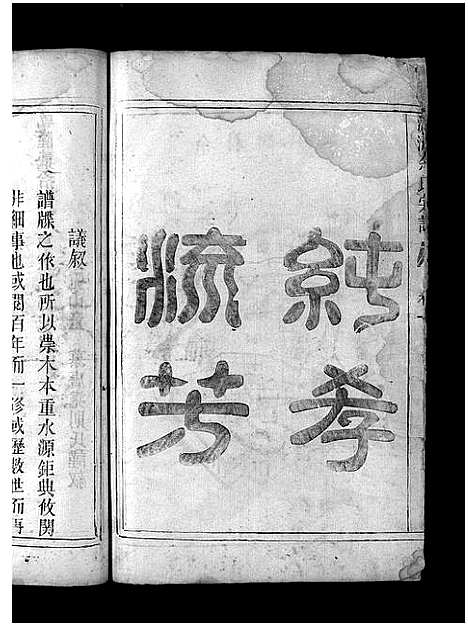 純孝
流芳
議叙
譜牒之作也所以崇木本重水源鉅典攸関
非細事也或閱百年而一修或歷数世而再